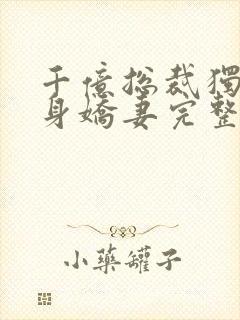 千億总裁獨
身嬌妻完整
小藥罐子